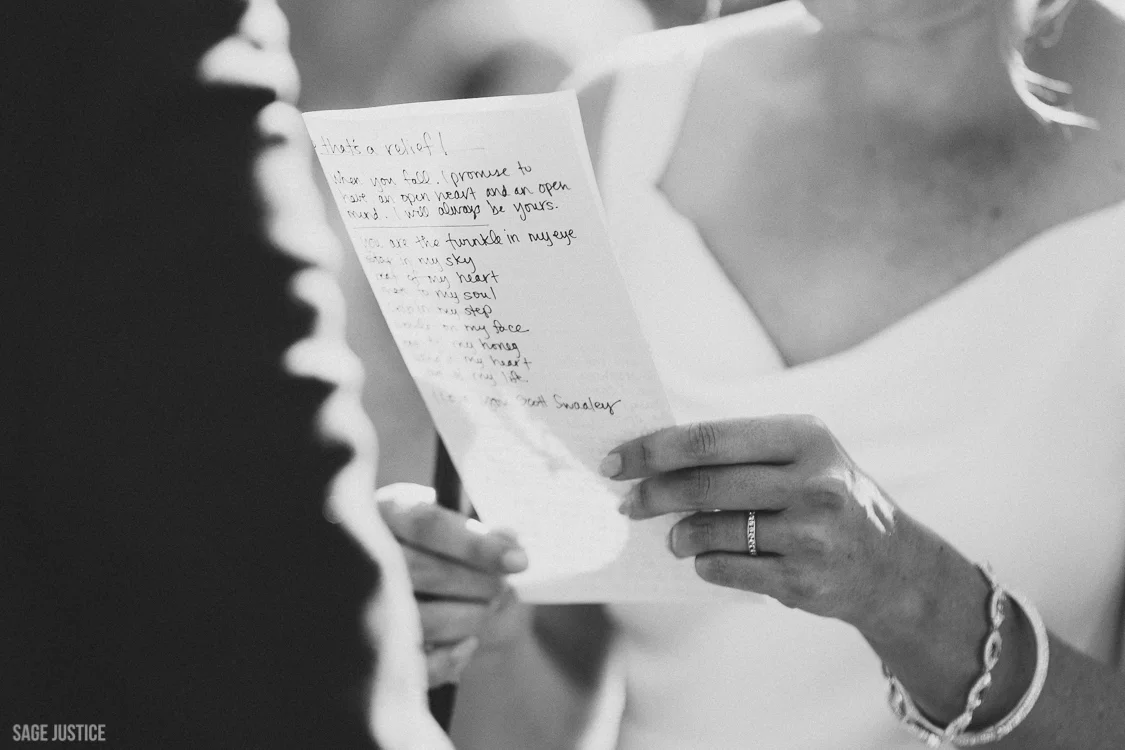 that's a relief!
when you fall. I promise to
have an open heart and an open
mind. I will always be yours.
you are the twinkle in my eye
in my sky
of my heart
to my soul
in my step
on my face
to my honey
my heart
my life.
you Scott Swaaley
SAGE JUSTICE